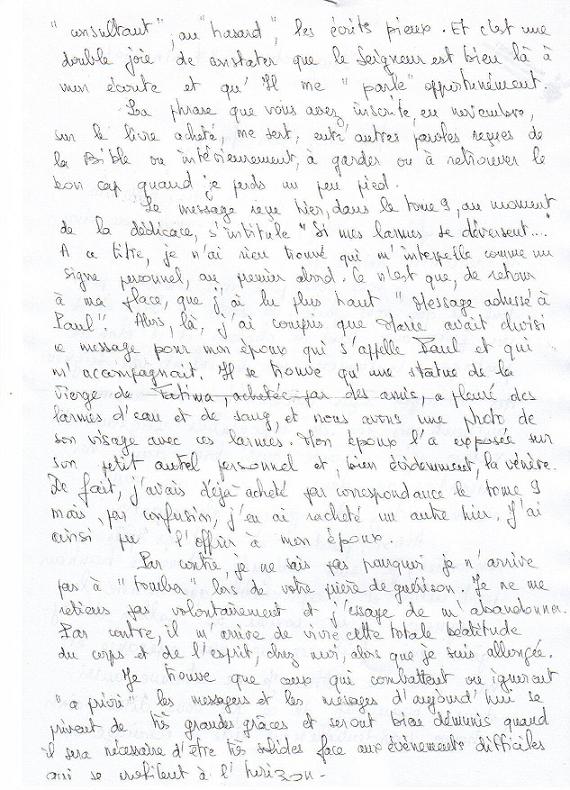 "consultant", au "hasard", les écrits pieux. Et c'est une
double joie de constater que le Seigneur est bien là à
mon écoute et qu'Il me "parle" opportunément.
La phrase que vous avez inscrite, en novembre,
sur le livre acheté, me sert, entr'autres paroles reçues de
la Bible ou intérieurement, à garder ou à retrouver le
bon cap quand je perds un peu pied.
Le message reçu hier, dans le tome 9, au moment
de la dédicace, s'intitule "Si mes larmes se déversent...
A ce titre, je n'ai rien trouvé qui m'interpelle comme un
signe personnel, au premier abord. Ce n'est que, de retour
à ma place, que j'ai lu plus haut "Message adressé à
Paul". Alors, là, j'ai compris que Marie avait choisi
ce message pour mon époux qui s'appelle Paul et qui
m'accompagnait. Il se trouve qu'une statue de la
Vierge de Fatima, achetée par des amis, a pleuré des
larmes d'eau et de sang, et nous avons une photo de
son visage avec ces larmes. Mon époux l'a exposée sur
son petit autel personnel et, bien évidemment, la vénère.
De fait, j'avais déjà acheté par correspondance le tome 9
mais, par confusion, j'en ai racheté un autre hier. J'ai
ainsi pu l'offrir à mon époux.
Par contre, je ne sais pas pourquoi je n'arrive
pas à "tomber" lors de votre prière de guérison. Je ne me
retiens pas volontairement et j'essaye de m'abandonner.
Par contre, il m'arrive de vivre cette totale béatitude
du corps et de l'esprit, chez moi, alors que je suis allongée.
Je trouve que ceux qui combattent ou ignorent
"a priori" les messagers et les messages d'aujourd'hui se
privent de très grandes grâces et seront bien démunis quand
il sera nécessaire d'être très solides face aux évènements difficiles
qui se profilent à l'horizon.